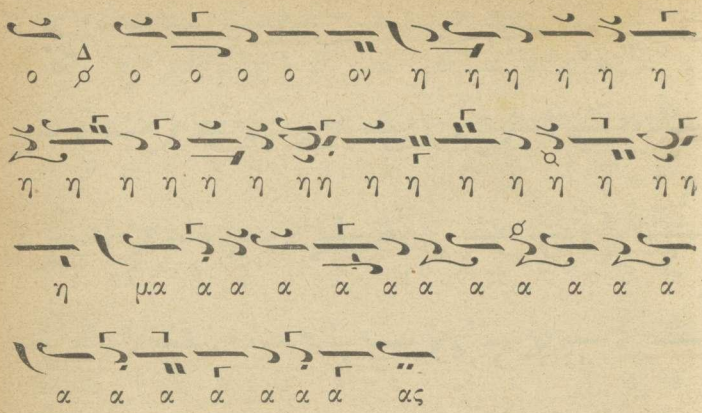 Δ
ο ο ο ο ο ον η η η η η η
η η η η η η ηη η η η η η η η η
η μα α α α α α α α α α α α
α α α α α α α ας